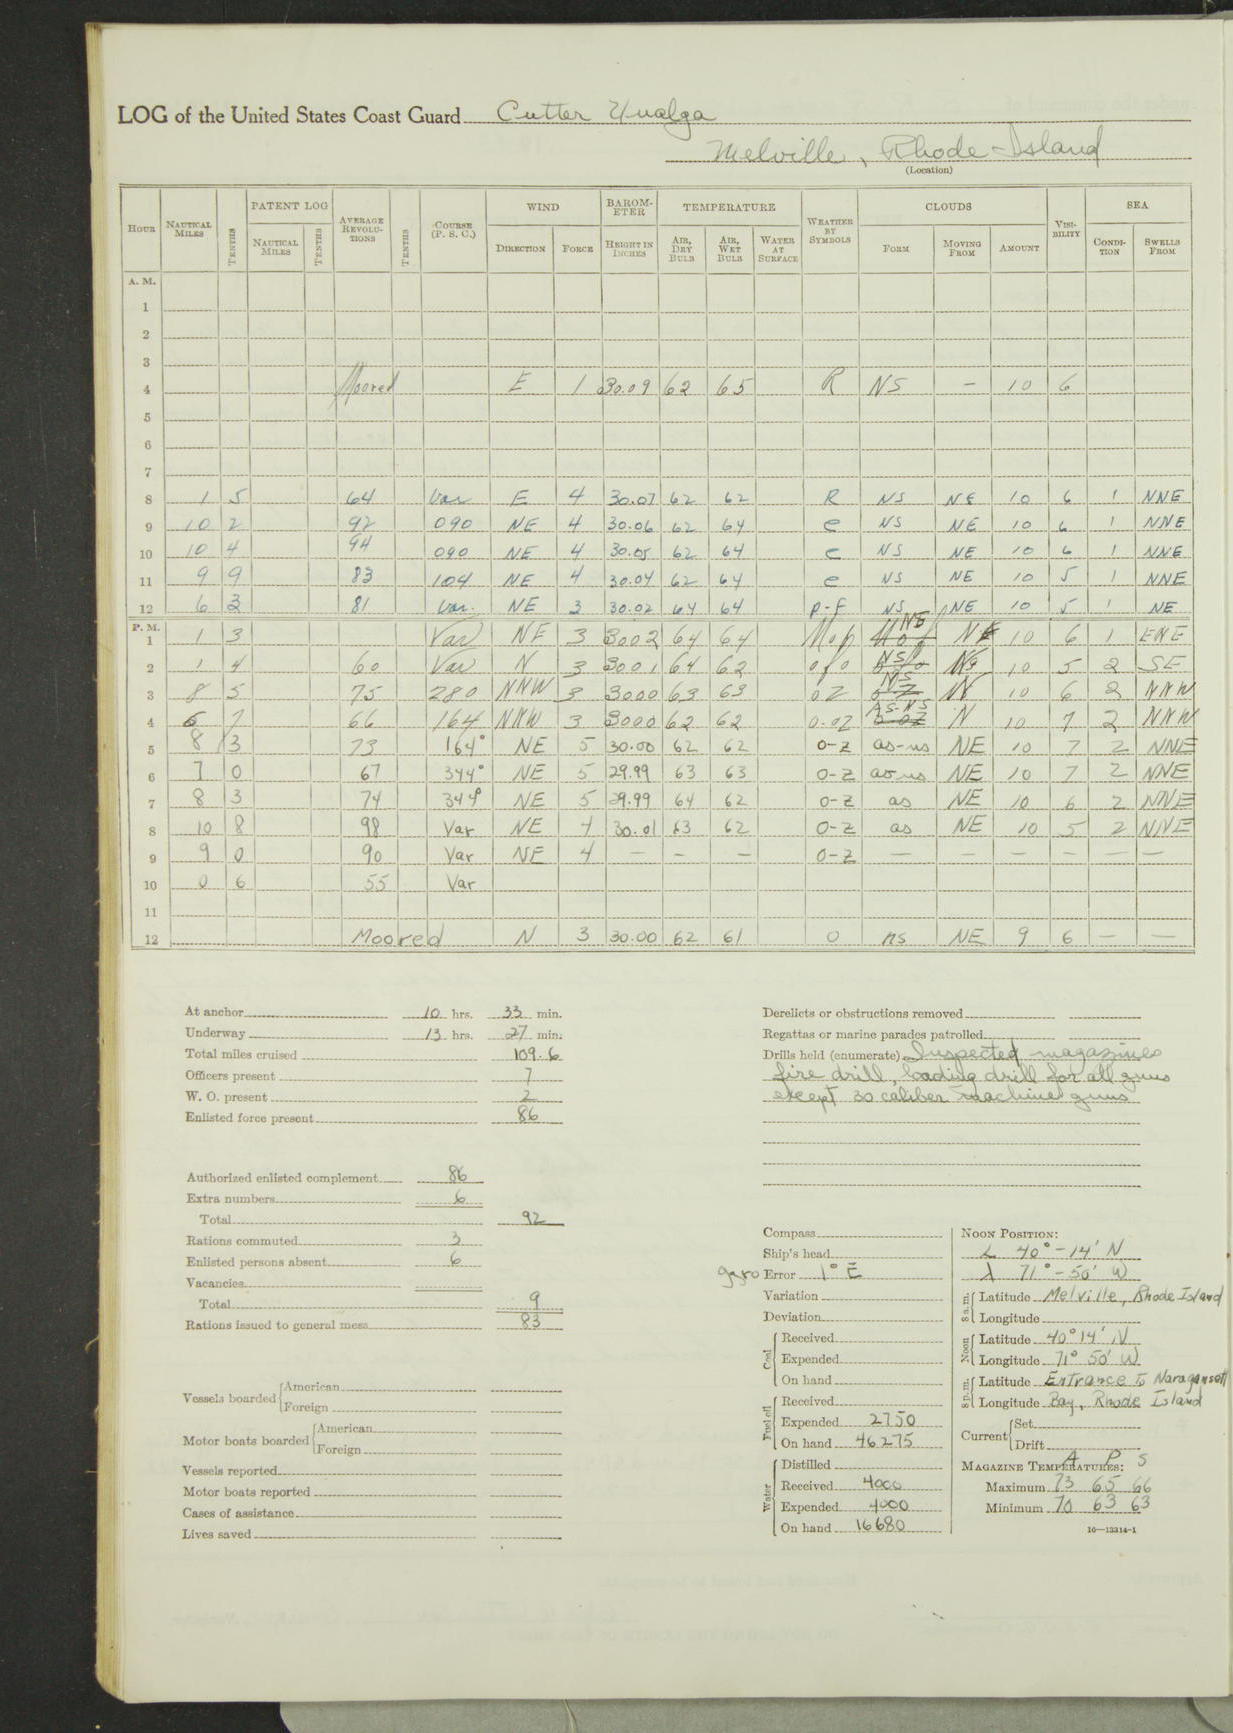 LOG of the United States Coast Guard Cutter Unalga
Melville, Rhode Island
(Location)
HOUR NAUTICAL MILES TENTHS PATENT LOG NAUTICAL MILES TENTHS AVERAGE REVOLUTIONS TENTHS COURSE (P. S. C.) WIND DIRECTION FORCE BAROMETER HEIGHT IN INCHES TEMPERATURE AIR, DRY BULB AIR, WET BULB WATER AT SURFACE WEATHER BY SYMBOLS CLOUDS FORM MOVING FROM AMOUNT VISIBILITY SEA CONDITION SWELLS FROM
A. M.
1
2
3
4 Moored E 1 30.09 62 65 R NS – 10 6
5
6
7
8 1 5 64 Var E 4 30.07 62 62 R NS NE 10 6 1 NNE
9 10 2 92 090 NE 4 30.06 62 64 e NS NE 10 6 1 NNE
10 10 4 94 090 NE 4 30.05 62 64 e NS NE 10 6 1 NNE
11 9 9 83 104 NE 4 30.04 62 64 e NS NE 10 5 1 NNE
12 6 3 81 Var. NE 3 30.02 64 64 p-F NS NE 10 5 1 NE
P. M.
1 1 3 Var NE 3 3002 64 64 10 6 1 ENE
2 1 4 60 Var N 3 3001 64 62 NS 10 5 2 SE
3 8 5 75 280 NNW 3 3000 63 63 oz NS N 10 6 2 NNW
4 6 7 66 164 NNW 3 3000 62 62 o-oz AS-NS N 10 7 2 NNW
5 8 3 73 164° NE 5 30.00 62 62 o-z as-ns NE 10 7 2 NNE
6 7 0 67 344° NE 5 29.99 63 63 o-z as-ns NE 10 7 2 NNE
7 8 3 74 344° NE 5 29.99 64 62 o-z as NE 10 6 2 NNE
8 10 8 98 Var NE 4 30.01 63 62 o-z as NE 10 5 2 NNE
9 9 0 90 Var NE 4 – – – o-z – – – – – –
10 0 6 55 Var
11
12 Moored N 3 30.00 62 61 o ns NE 9 6 – –
At anchor 10 hrs. 33 min.
Underway 13 hrs. 27 min.
Total miles cruised 109.6
Officers present 7
W. O. present 2
Enlisted force present 86
Authorized enlisted complement 86
Extra numbers 6
Total 92
Rations commuted 3
Enlisted persons absent 6
Vacancies
Total 9
Rations issued to general mess 83
Vessels boarded American
Foreign
Motor boats boarded American
Foreign
Vessels reported
Motor boats reported
Cases of assistance
Lives saved
Derelicts or obstructions removed
Regattas or marine parades patrolled
Drills held (enumerate) Inspected magazines
fire drill, loading drill for all guns
except 30 caliber machine guns
Compass
Ship's head
gyro Error 1° E
Variation
Deviation
Coal Received
Expended
On hand
Fuel oil Received
Expended 2750
On hand 46275
Water Distilled
Received 4000
Expended 4000
On hand 16680
NOON POSITION:
L 40°-14' N
λ 71°-50' W
8 a.m. Latitude Melville, Rhode Island
Longitude
Noon Latitude 40° 14' N
Longitude 71° 50' W
8 p.m. Latitude Entrance to Naragansett
Longitude Bay, Rhode Island
Current Set
Drift
A P S
MAGAZINE TEMPERATURES:
Maximum 73 65 66
Minimum 70 63 63
16—13314-1